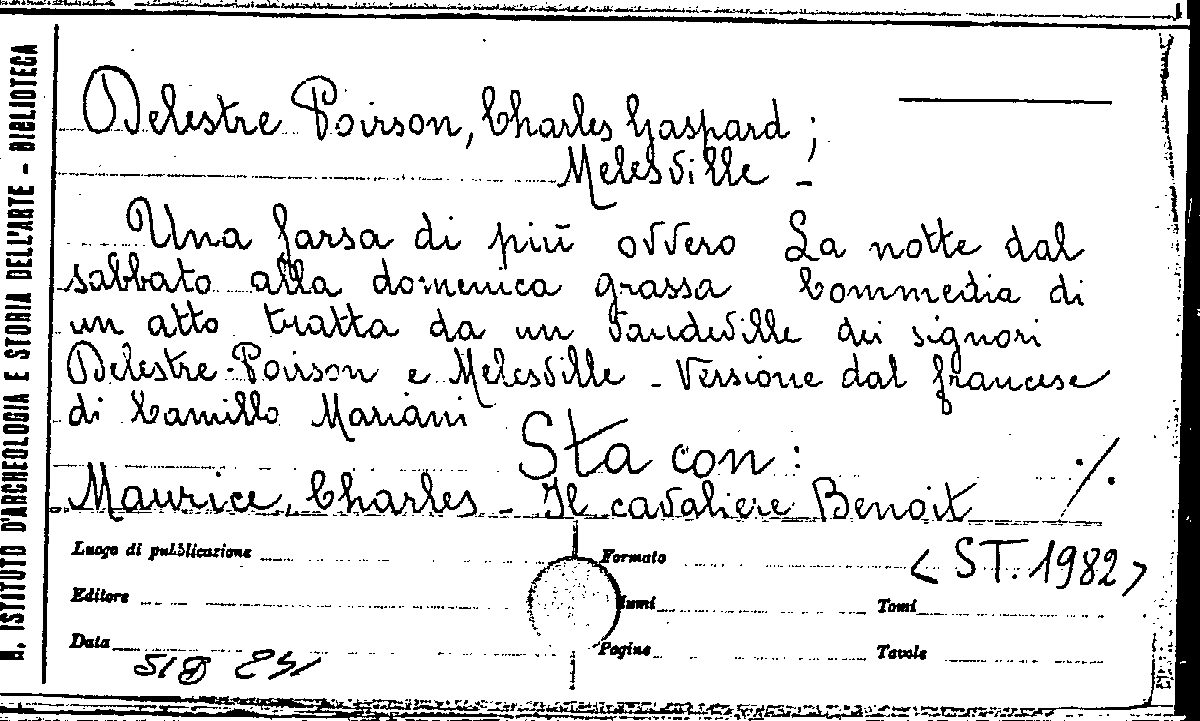 R. ISTITUTO D'ARCHEOLOGIA E STORIA DELL'ARTE - BIBLIOTECA
Delestre Poirson, Charles Gaspard ;
Melesville -
Una farsa di più ovvero La notte dal
sabbato alla domenica grassa Commedia di
un atto tratta da un Vaudeville dei signori
Delestre-Poirson e Melesville - Versione dal francese
di Camillo Mariani
Sta con :
Maurice, Charles - Il cavaliere Benoit ./.
Luogo di pubblicazione Formato
<ST. 1982>
Editore Tomi
Data Pagine Tavole